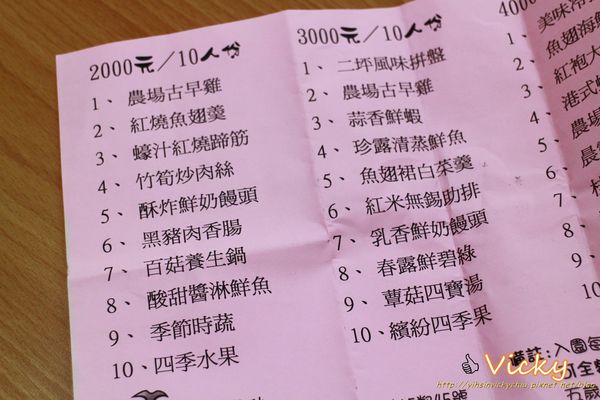 2000元／10人份
1、農場古早雞
2、紅燒魚翅羹
3、蠔汁紅燒蹄筋
4、竹筍炒肉絲
5、酥炸鮮奶饅頭
6、黑豬肉香腸
7、百菇養生鍋
8、酸甜醬淋鮮魚
9、季節時蔬
10、四季水果
3000元／10人份
1、二坪風味拼盤
2、農場古早雞
3、蒜香鮮蝦
4、珍露清蒸鮮魚
5、魚翅裙白菜羹
6、紅米無錫肋排
7、乳香鮮奶饅頭
8、春露鮮碧綠
9、蕈菇四寶湯
10、繽紛四季果
4000
1、美味冷
2、魚翅海鮮
3、紅袍大
4、港式
5、農場
6、
7、
8、
9、
10
備註：入園每
Vicky